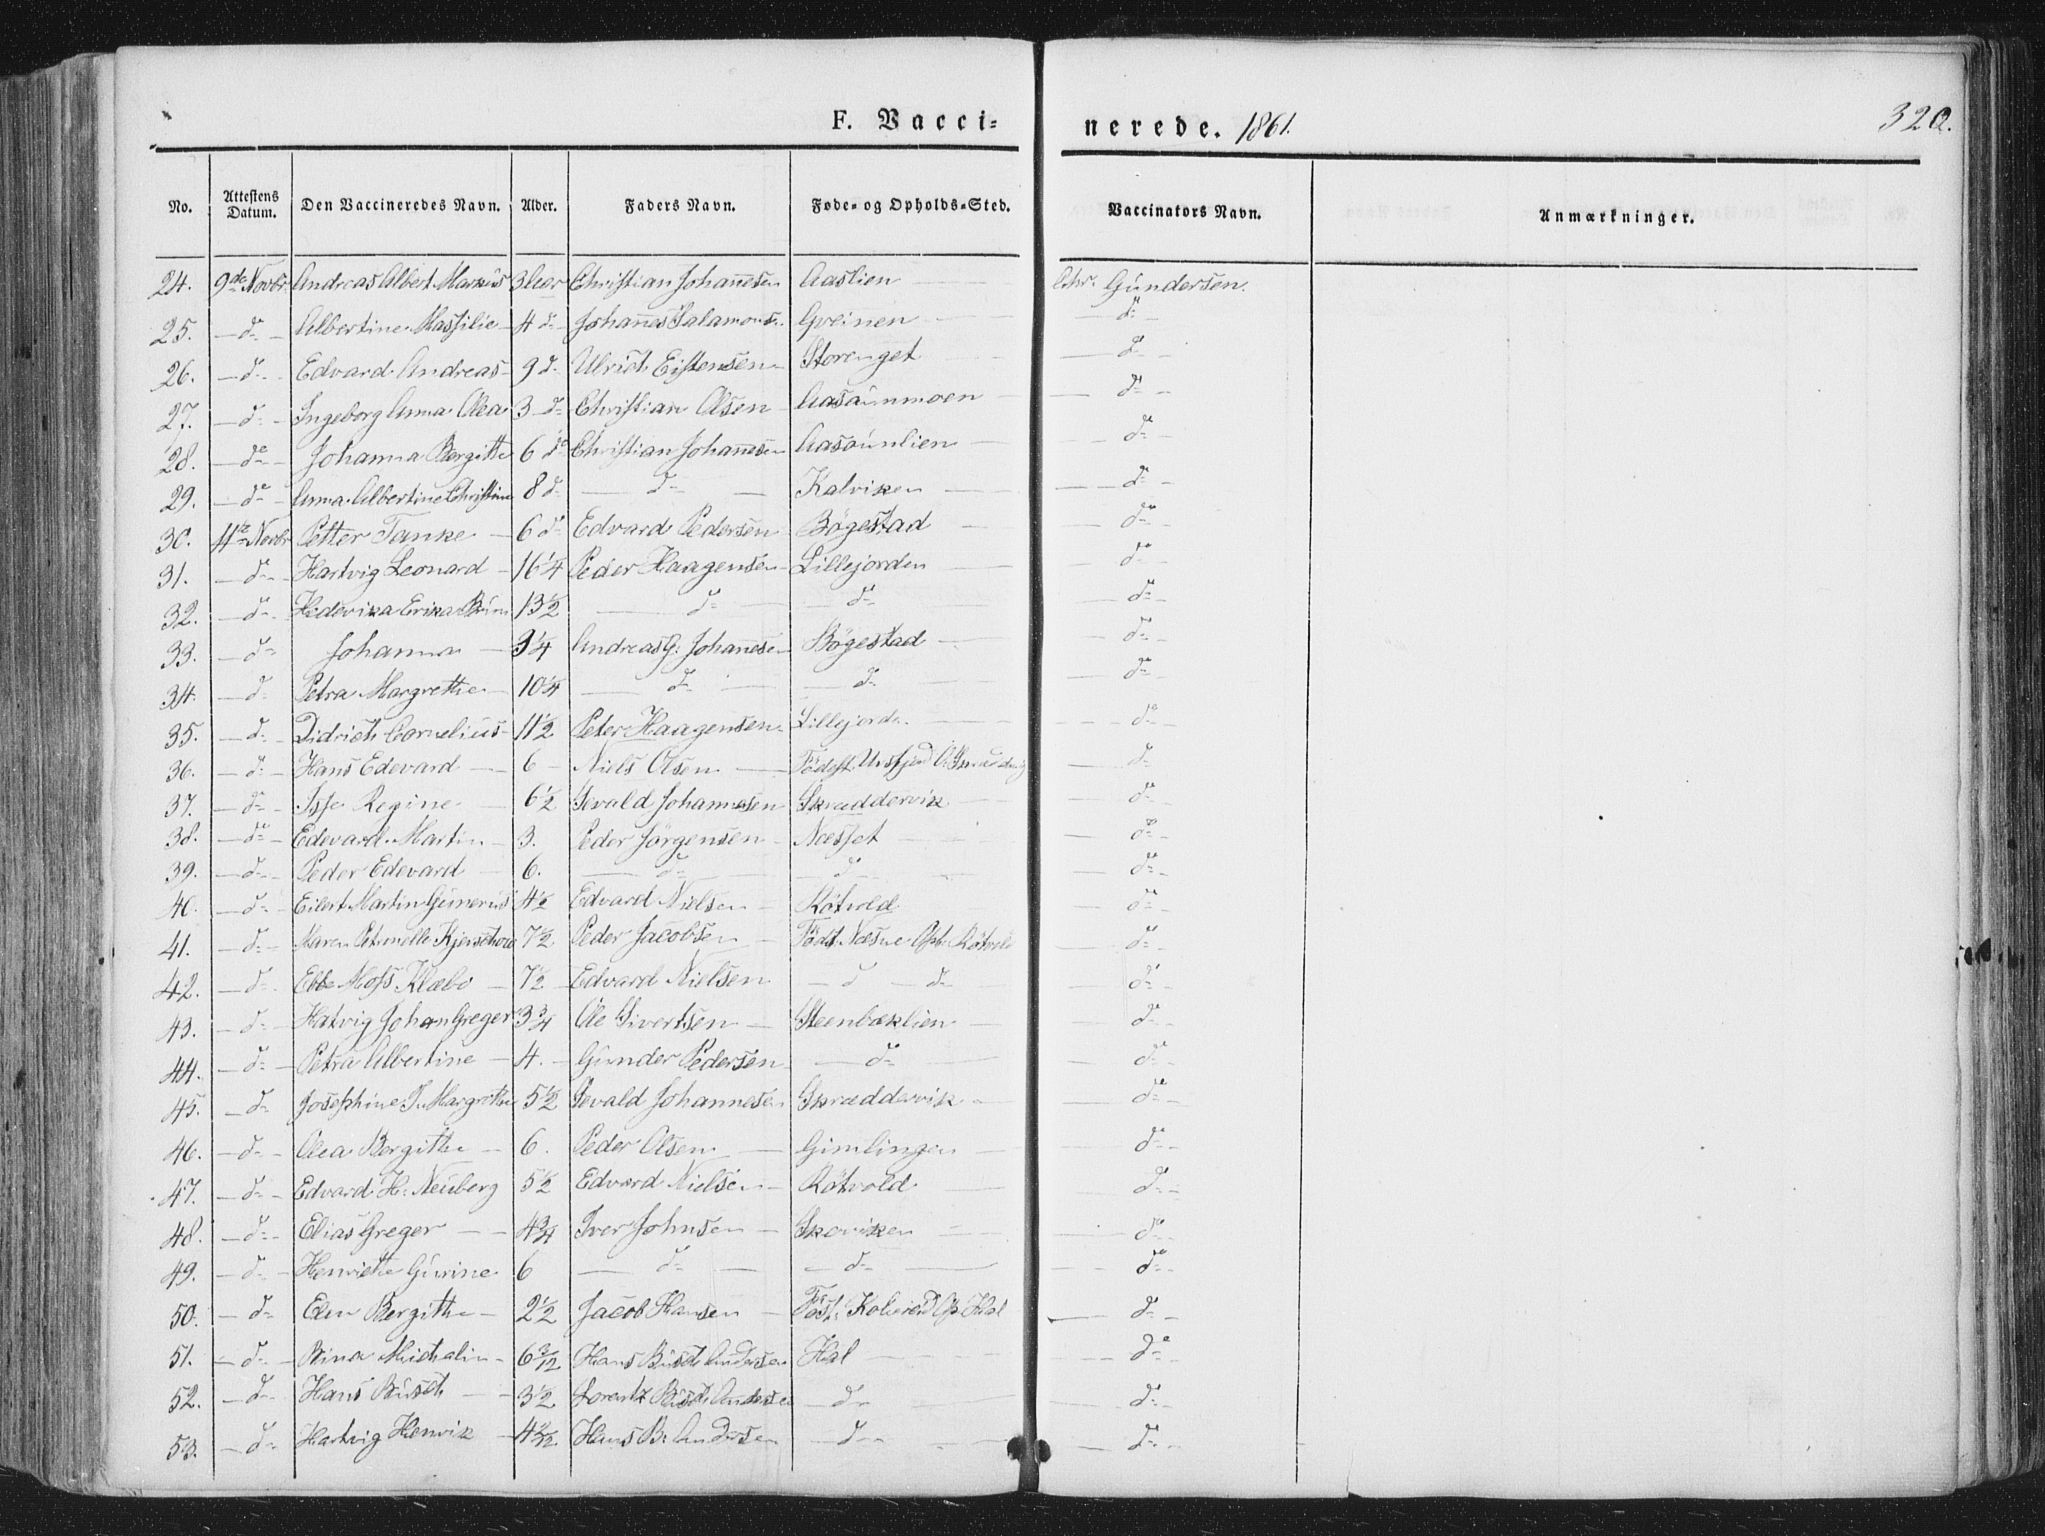 F. Vacci=
nerede. 1861.
320.
No. Attestens Datum. Den Vaccineredes Navn. Alder. Faders Navn. Føde- og Opholds-Sted. Vaccinators Navn. Anmærkninger.
24. 9de Novbr. Andreas Albert Markus 3 Aar Christian Johannesen Aaslien Chr. Gundersen.
25. - do - Albertine Massilie 4 do Johannes Salamons. Greinen do
26. - do - Edvard Andreas 9 do Ulrich Eistensen Storenget do
27. - do - Ingeborg Anna Olea 3 do Christian Olsen Aasaunmoen do
28. - do - Johanna Bergitte 6 do Christian Johannesen Aasaunlien do
29. - do - Anna Albertine Christine 8 do do Kalviken do
30. 11te Novbr Petter Tanke 6 do Edvard Pedersen Bøgestad do
31. - do - Hartvig Leonard 16 1/4 Peder Haagensen Lillejorden do
32. - do - Hedevika Erika 13 1/2 do do do
33. - do - Johanna 3 1/4 Andreas G. Johannesen Bøgestad do
34. - do - Petra Margrethe 10 1/4 do do do
35. - do - Didrich Cornelius 11 1/2 Peter Haagensen Lillejord. do
36. - do - Hans Edevard 6 Niels Olsen Født do
37. - do - Regine 6 1/2 Sevald Johannesen Skræddervik do
38. - do - Edevard Martin 3. Peder Jørgensen Næsset do
39. - do - Peder Edevard 6. do do do
40. - do - Eilert Martin Gunerius 4 1/2 Edvard Nielsen Røtvold do
41. - do - Maren Petronelle 7 1/2 Peder Jacobsen Født Næsne Op. Røtvold do
42. - do - Ebbe Moss Klæbo 7 1/2 Edvard Nielsen do do do
43. - do - Hatvig Johan Greger 3 3/4 Ole Sivertsen Steenbæklien do
44. - do - Petra Albertine 4. Gunder Pedersen do do
45. - do - Josephine J. Margrethe 5 1/2 Sevald Johannesen Skræddervik do
46. - do - Olea Bergithe 6. Peder Olsen Gimlingen do
47. - do - Edvard H. Neuberg 5 1/2 Edvard Nielsen Røtvold do
48. - do - Elias Greger 4 3/4 Iver Johnsen Skoviken do
49. - do - Henriette Gurine 6 do do do
50. - do - Elen Bergithe 2 1/2 Jacob Hansen Født Op. Hal do
51. - do - Michalin 6 3/12 Hans Busch Andersen Hal do
52. - do - Hans Busch 3 1/2 Lorentz Busch Andersen do do
53. - do - Hartvig Henrik 4 Hans B. Andersen do do